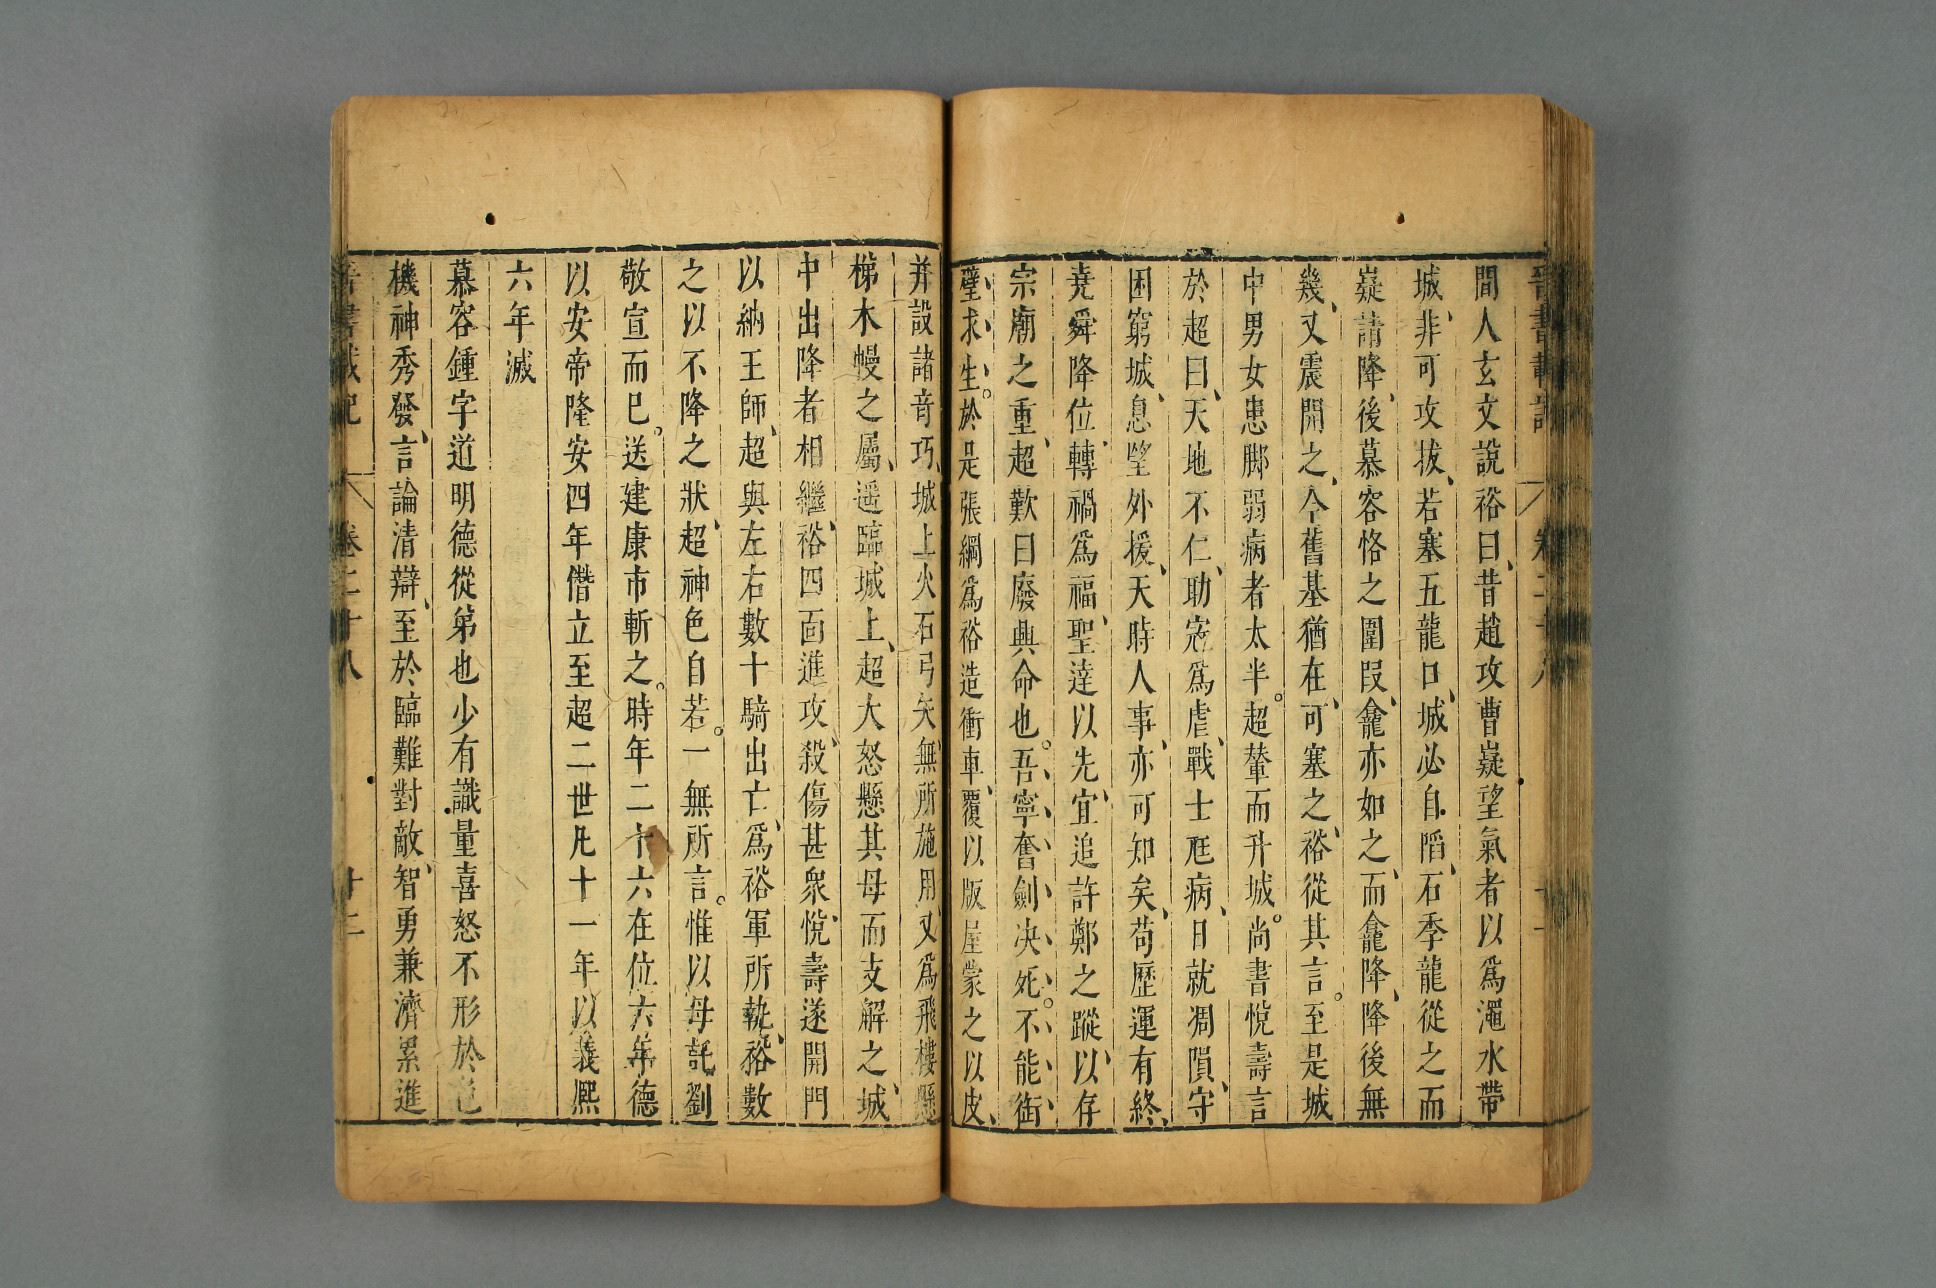 間人玄文說裕曰、昔趙攻曹嶷望氣者以爲澠水帶
城、非可攻拔、若塞五龍口、城必自陷、石季龍從之而
嶷請降、後慕容恪之圍段龕、亦如之、而龕降、降後無
幾、又震開之、今舊基猶在、可塞之、裕從其言。至是城
中男女患脚弱病者太半。超輦而升城。尚書悅壽言
於超曰、天地不仁、助寇爲虐、戰士尫病、日就凋隕、守
困窮城、息望外援、天時人事、亦可知矣、苟歷運有終、
堯舜降位、轉禍爲福、聖達以先、宜追許鄭之蹤、以存
宗廟之重、超歎曰廢興命也。吾寧奮劍决死。不能銜
璧求生。於是張綱爲裕造衝車、覆以版屋蒙之以皮、
并設諸奇巧、城上火石弓矢無所施用、又爲飛樓懸
梯木幔之屬、遥臨城上、超大怒懸其母而支解之、城
中出降者相繼、裕四面進攻、殺傷甚衆、悅壽遂開門
以納王師、超與左右數十騎出亡、爲裕軍所執、裕數
之以不降之狀、超神色自若。一無所言。惟以母託劉
敬宣而已。送建康市斬之。時年二十六在位六年德
以安帝隆安四年僭立至超二世凡十一年以義熙
六年滅
慕容鍾字道明德從弟也少有識量喜怒不形於色
機神秀發、言論清辯、至於臨難對敵、智勇兼濟累進
晉書載記 卷二十八 十二